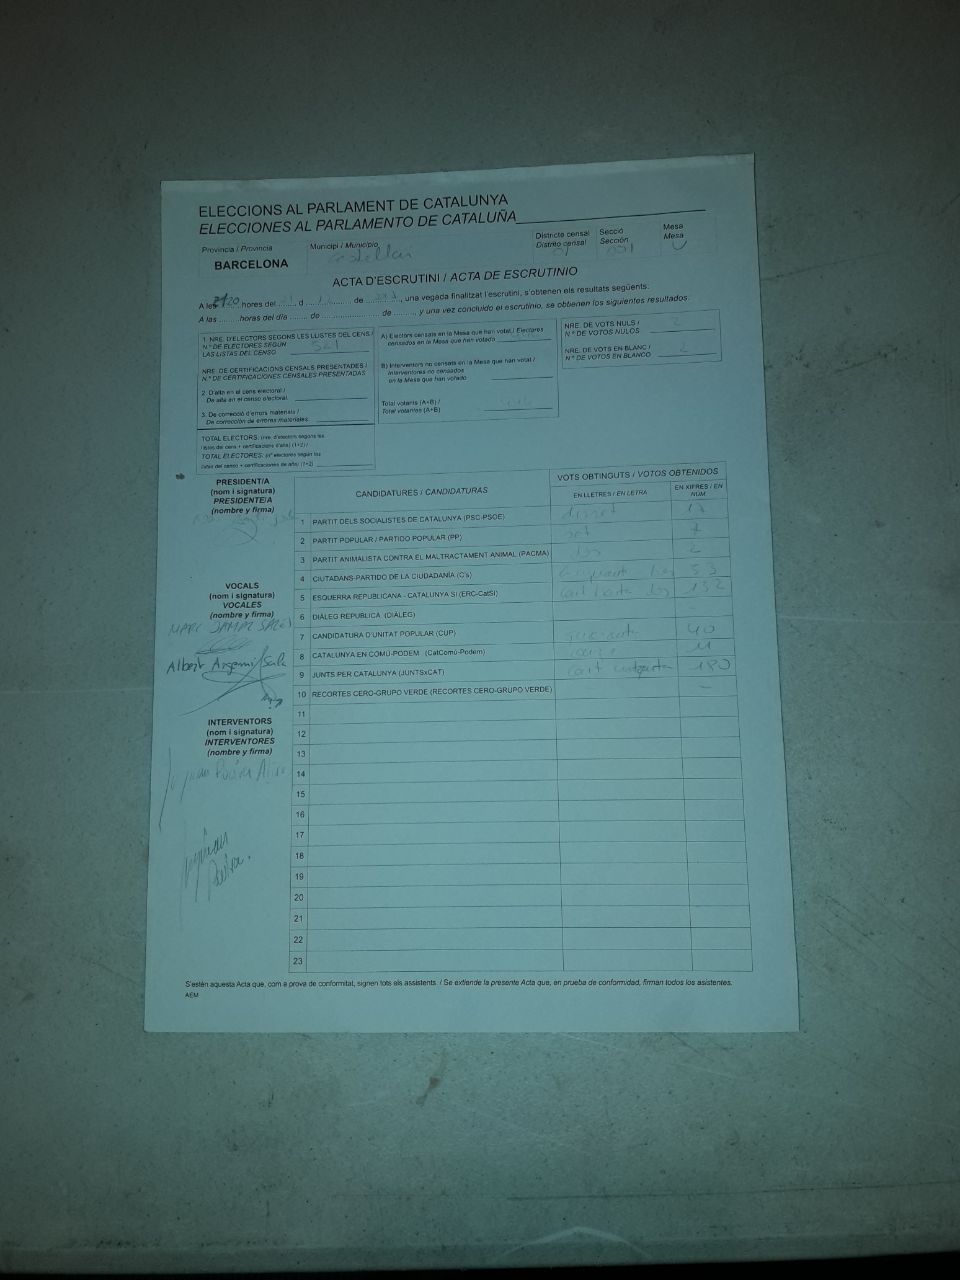 ELECCIONS AL PARLAMENT DE CATALUNYA
ELECCIONES AL PARLAMENTO DE CATALUÑA
Província / Provincia
BARCELONA
Municipi / Municipio
Castellar
Districte censal
Distrito censal
01
Secció
Sección
001
Mesa
Mesa
U
ACTA D'ESCRUTINI / ACTA DE ESCRUTINIO
A les 21:20 hores del d de , una vegada finalitzat l'escrutini, s'obtenen els resultats següents:
A las horas del día de de , y una vez concluido el escrutinio, se obtienen los siguientes resultados:
1. NRE. D'ELECTORS SEGONS LES LLISTES DEL CENS /
N.º DE ELECTORES SEGÚN
LAS LISTAS DEL CENSO
NRE. DE CERTIFICACIONS CENSALS PRESENTADES /
N.º DE CERTIFICACIONES CENSALES PRESENTADAS
2. D'alta en el cens electoral /
De alta en el censo electoral
3. De correcció d'errors materials /
De corrección de errores materiales
TOTAL ELECTORS: (nre. d'electors segons les
llistes del cens + certificacions d'alta) (1+2) /
TOTAL ELECTORES: (nº electores según las
listas del censo + certificaciones de alta) (1+2)
A) Electors censats en la Mesa que han votat / Electores
censados en la Mesa que han votado
B) Interventors no censats en la Mesa que han votat /
Interventores no censados
en la Mesa que han votado
Total votants (A+B) /
Total votantes (A+B)
NRE. DE VOTS NULS /
N.º DE VOTOS NULOS
NRE. DE VOTS EN BLANC /
N.º DE VOTOS EN BLANCO
PRESIDENT/A
(nom i signatura)
PRESIDENTE/A
(nombre y firma)
VOCALS
(nom i signatura)
VOCALES
(nombre y firma)
MARC
Albert Argemí Sala
INTERVENTORS
(nom i signatura)
INTERVENTORES
(nombre y firma)
CANDIDATURES / CANDIDATURAS
VOTS OBTINGUTS / VOTOS OBTENIDOS
EN LLETRES / EN LETRA
EN XIFRES / EN NÚM
1 PARTIT DELS SOCIALISTES DE CATALUNYA (PSC-PSOE) disset 17
2 PARTIT POPULAR / PARTIDO POPULAR (PP) set 7
3 PARTIT ANIMALISTA CONTRA EL MALTRACTAMENT ANIMAL (PACMA) dos 2
4 CIUTADANS-PARTIDO DE LA CIUDADANÍA (C's) cinquanta tres 53
5 ESQUERRA REPUBLICANA - CATALUNYA SÍ (ERC-CatSÍ) cent trenta dos 132
6 DIÀLEG REPUBLICÀ (DIÀLEG)
7 CANDIDATURA D'UNITAT POPULAR (CUP) quaranta 40
8 CATALUNYA EN COMÚ-PODEM (CatComú-Podem) onze 11
9 JUNTS PER CATALUNYA (JUNTSxCAT) cent vuitanta 180
10 RECORTES CERO-GRUPO VERDE (RECORTES CERO-GRUPO VERDE) -
11
12
13
14
15
16
17
18
19
20
21
22
23
S'estén aquesta Acta que, com a prova de conformitat, signen tots els assistents. / Se extiende la presente Acta que, en prueba de conformidad, firman todos los asistentes.
AEM